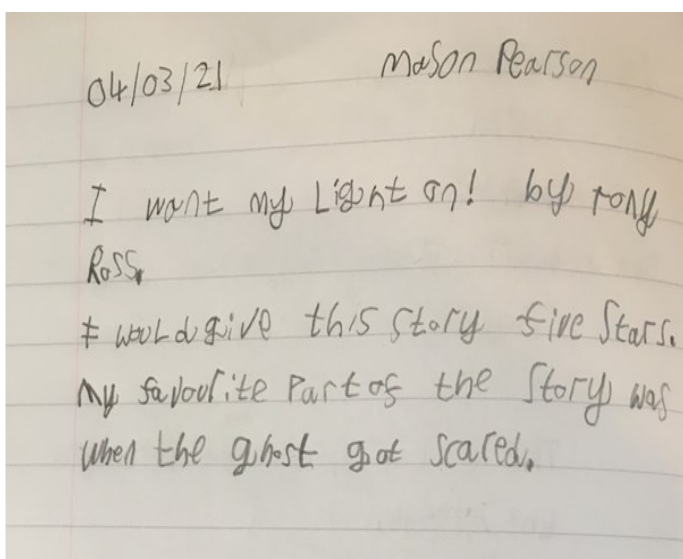 04/03/21 Mason Pearson
I want my Light on! by tony
Ross.
I would give this story five Stars.
My favourite Part of the Story was
when the ghost got scared.